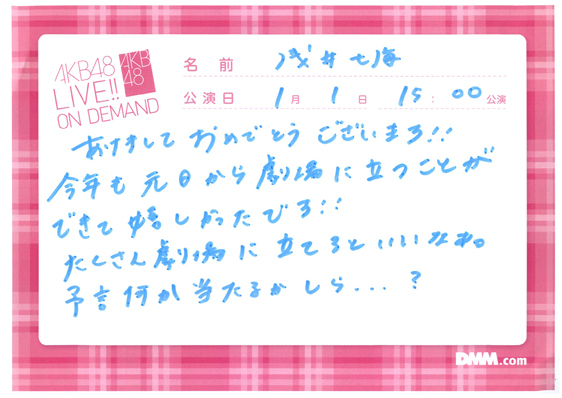 AKB48
LIVE!!
ON DEMAND
AKB
48
名前 浅井七海
公演日 1月 1日 15:00公演
あけまして おめでとう ございます!!
今年も 元日から 劇場に立つことが
できて 嬉しかったです!!
たくさん劇場に立てるといいなぁ。
予言何か当たるかしら...?
DMM.com